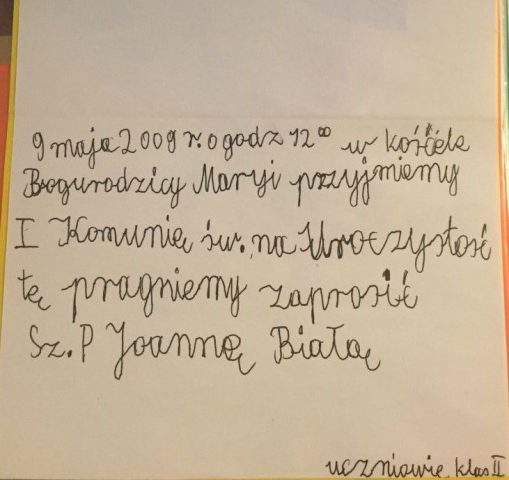 9 maja 2009 r. o godz 12⁰⁰ w kościele
Bogurodzicy Maryi przyjmiemy
I Komunię św. na Uroczystość
tę pragniemy zaprosić
Sz. P Joannę Białą
uczniowie klas II